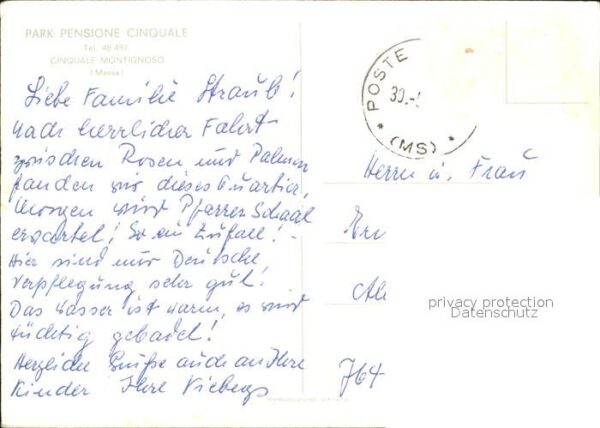 PARK PENSIONE CINQUALE
Tel. 48.497
CINQUALE MONTIGNOSO
(Massa)
Liebe Familie Straub!
Nach herrlicher Fahrt
zwischen Rosen und Palmen
fanden wir dieses Quartier,
Morgen wird Pfarrer Schaal
erwartet! So ein Zufall! -
Hier sind nur Deutsche
Verpflegung sehr gut!
Das Wasser ist warm, es wird
tüchtig gebadet!
Herzliche Grüße auch an Ihre
Kinder Ihre Viebergs
POSTE
30.-
(MS)
Herrn u. Frau
764
privacy protection
Datenschutz